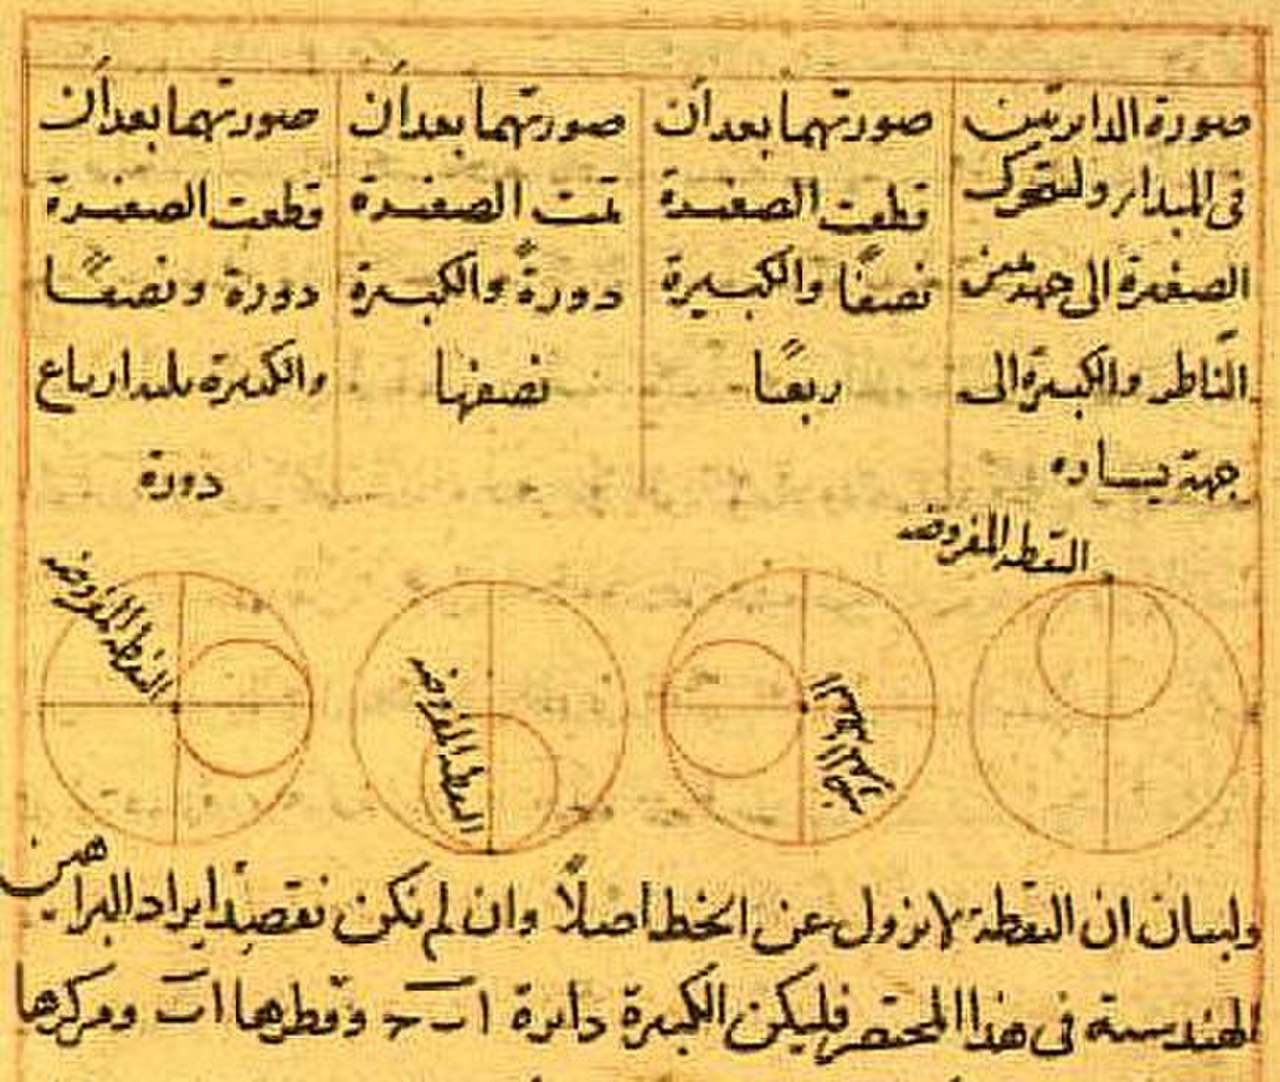 صورة الدايرتين
فى المبدا ولتتحرك
الصغيرة الى جهة يمين
الناظر والكبيرة الى
جهة يساره
صورتهما بعد أن
قطعت الصغيرة
نصفًا والكبيرة
ربعًا
صورتهما بعد أن
تمت الصغيرة
دورةً والكبيرة
نصفها
صورتهما بعد أن
قطعت الصغيرة
دورة ونصفًا
والكبيرة ثلثة ارباع
دورة
النقطة المفروضة
النقطة المفروضة
النقطة المفروضة
النقطة المفروضة
ولبيان ان النقطة لا تزول عن الخط اصلاً وان لم نكن نقصد ايراد البراهين
الهندسية فى هذا المختصر فليكن الكبيرة دايرة ا ب ج وقطرها ا ب ومركزها